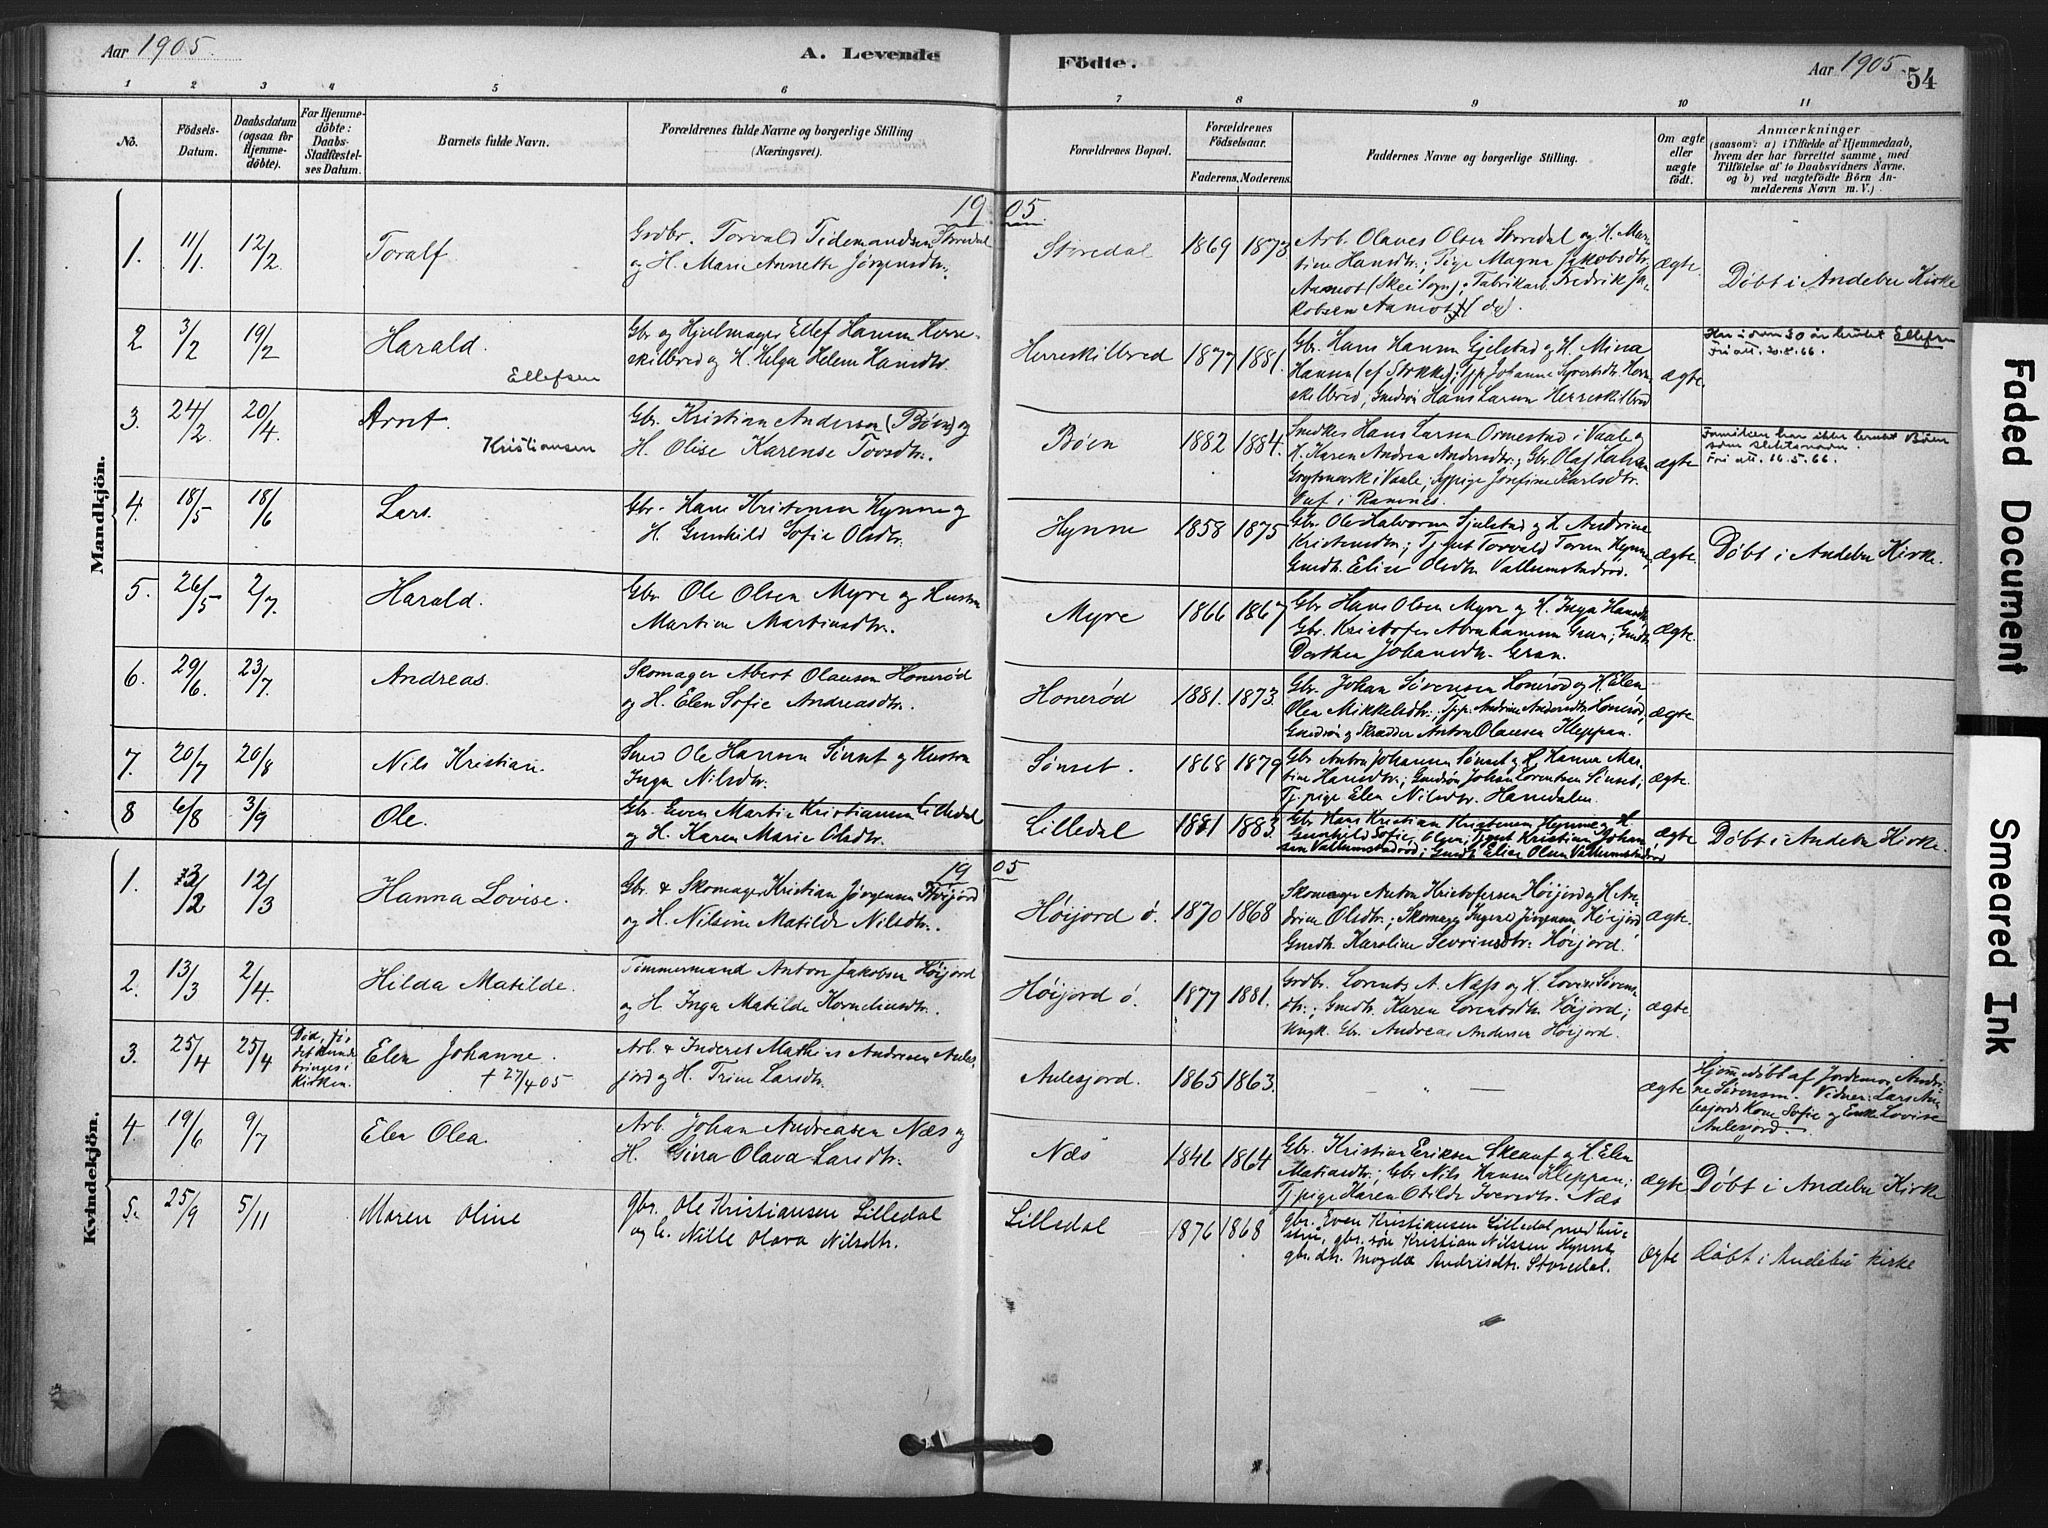 Aar 1905.
A. Levende
Födte.
Aar 1905.
54
1 2 3 4 5 6
7 8 9 10 11
No.
Födsels-
Datum.
Daabsdatum
(ogsaa for
Hjemme-
döbte).
For Hjemme-
döbte:
Daabs-
Stadfæstel-
ses Datum.
Barnets fulde Navn.
Forældrenes fulde Navne og borgerlige Stilling
(Næringsvei).
Forældrenes Bopæl.
Forældrenes
Födselsaar.
Faderens. Moderens.
Faddernes Navne og borgerlige Stilling.
Om ægte
eller
uægte
födt.
Anmærkninger
(saasom: a) i Tilfælde af Hjemmedaab,
hvem der har forrettet samme, med
Tilföielse af to Daabsvidners Navne,
og b) ved uægtefödte Börn An-
melderens Navn m. V.)
Mandkjön.
1905
1. 11/1 12/2 Toralf
Grdbr. Torvald Tidemandsen Storedal
og H. Marie Annette Jørgensdtr.
Storedal 1869 1873
Arb. Olaves Olsen Storedal og H. Mar-
tine Hansdtr.; Pige Magna Jakobsdtr.
Aamot (Skei Sogn); Fabrikarb. Fredrik Ja-
kobsen Aamot (do).
ægte Døbt i Andebu Kirke
2 3/2 19/2 Harald.
Ellefsen
Gbr og Hjulmager Ellef Hansen Herre-
skilbred og H. Helga Helene Hansdtr.
Herreskilbred 1877 1881.
Gbr. Hans Hansen Gjelstad og H. Mina
Hansen (af Stokke); Johanne Syvertsdtr. Herre-
skilbred, Gmdsøn Hans Larsen Herreskilbred
ægte.
Har i over 30 år brukt Ellefsen
Fri att. 20.8.66.
3. 24/2 20/4. Arnt.
Kristiansen
Gbr. Kristian Andersen (Bøen) og
H. Olise Karense Torsdtr.
Bøen 1882 1884.
Smedkes Hans Larsen Ormestad i Vaale og
H. Karen Andrea Andersdtr.; Gbr. Olaf
i Vaale; Sypige Josefine Karlsdtr.
i Ramnes.
ægte
Familien har ikke brukt Bøen
som slektsnavn.
Fri att. 16.5.66.
4. 18/5 18/6 Lars.
Gbr. Hans Kristensen Hynne og
H. Gunhild Sofie Olsdtr.
Hynne 1858 1875
Gbr. Ole Halvorsen Gjelstad og H. Andrine
Kristensdtr.; Tjgut Torvald Toresen Hynne;
Gmdtr. Elise Olsdtr. Vallumstadrød.
ægte Døbt i Andebu Kirke.
5. 26/5 2/7. Harald.
Gbr. Ole Olsen Myre og Hustru
Martine Martinsdtr.
Myre 1866 1867
Gbr. Hans Olsen Myre og H. Inga Hansdtr.
Gbr. Kristofer Abrahamsen Gran; Gmdtr.
Dorthea Johansdtr. Gran.
ægte.
6. 29/6. 23/7. Andreas.
Skomager Abert Olausen Honerød
og H. Elen Sofie Andreasdtr.
Honerød 1881. 1873.
Gbr. Johan Sørensen Honerød og H. Elen
Olea Mikkelsdtr.; Tjp. Andrine Andersdtr. Honerød,
Gmdsøn og Skrædder Anton Olausen Kleppan.
ægte.
7. 20/7 20/8 Nils Kristian.
Smed Ole Hansen Sønset og Hustru
Inga Nilsdtr.
Sønset. 1868 1879
Gbr Anton Johansen Sønset og H. Hanna Mar-
tine Hansdtr.; Gmdsøn Johan Lorentsen Sønset;
Tj.pige Elen Nilsdtr. Hanedalen.
ægte.
8 6/8 3/9 Ole.
Gbr. Even Martin Kristiansen Lilledal
og H. Karen Marie Olsdtr.
Lilledal 1881 1883.
Gbr Hans Kristian Kristensen Hynne og H.
Gunhild Sofie Olsen; Tjgut Kristian Johan-
sen Vallumstadrød; Gmdtr Elise Olsen Vallumstadrød
ægte Døbt i Andebu Kirke.
Kvindekjön.
1905
1. 3/2 12/3 Hanna Lovise.
Gbr. & Skomager Kristian Jørgensen Høijord
og H. Nilsine Matilde Nilsdtr.
Høijord ø. 1870 1868
Skomager Anton Kristofersen Høijord og H. An-
drine Olsdtr.; Skomag Ingvald Jørgensen Høijord
Gmdtr. Karoline Severinsdtr. Høijord.
ægte.
2. 13/3 2/4. Hilda Matilde.
Timmermand Anton Jakobsen Høijord
og H. Inga Matilde Korneliusdtr.
Høijord ø. 1877 1881.
Grdbr. Lorents A. Næss og H. Lovise Sørens-
dtr.; Gmdtr. Karen Lorentsdtr. Høijord;
Ungk. Gbr. Andreas Andersen Høijord.
ægte
3. 25/4 25/4
Død, før
det kunde
bringes i
Kirken.
Elen Johanne.
+ 27/4 05
Arb. & Inderst Mathias Andresen Aules-
jord og H. Trine Larsdtr.
Aulesjord. 1865 1863.
" — "
ægte
Hjemmedøbt af Jordemor Andri-
ne Sørensen. Vidner: Lars Au-
lesjords Kone Sofie og Enke Lovise
Aulesjord.
4. 19/6 9/7 Elen Olea.
Arb. Johan Andreasen Næs og
H. Gina Olava Larsdtr.
Næs 1846 1864
Gbr. Kristian Eriksen Skeauf og H. Elen
Matiasdtr; Gbr Nils Hansen Kleppan;
Tj.pige Karen Otilde Iversdtr. Næs
ægte Døbt i Andebu Kirke
5. 25/9 5/11 Maren Oline
gbr. Ole Kristiansen Lilledal
og h. Nille Olava Nilsdtr.
Lilledal 1876 1868
gbr. Even Kristiansen Lilledal med hu-
stru, gbr. søn Kristian Nilssen Hynne,
gbr. dtr. Magda Andrisdtr. Storedal.
ægte Døbt i Andebu kirke
Faded Document
Smeared Ink